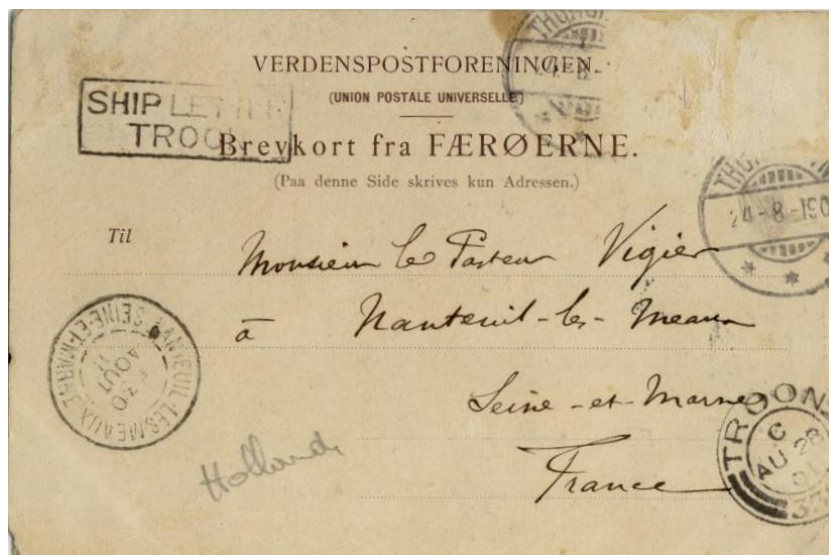 VERDENSPOSTFORENINGEN.
(UNION POSTALE UNIVERSELLE)
SHIP LETTER
TROON
Brevkort fra FÆRØERNE.
(Paa denne Side skrives kun Adressen.)
24-8-190
Til
Monsieur le Pasteur Vigier
à Nanteuil-les-Meaux
Seine-et-Marne
France
NANTEUIL-LES-MEAUX SEINE-ET-MARNE
30
AOUT
TROON
C
AU 28
01
33
Holland